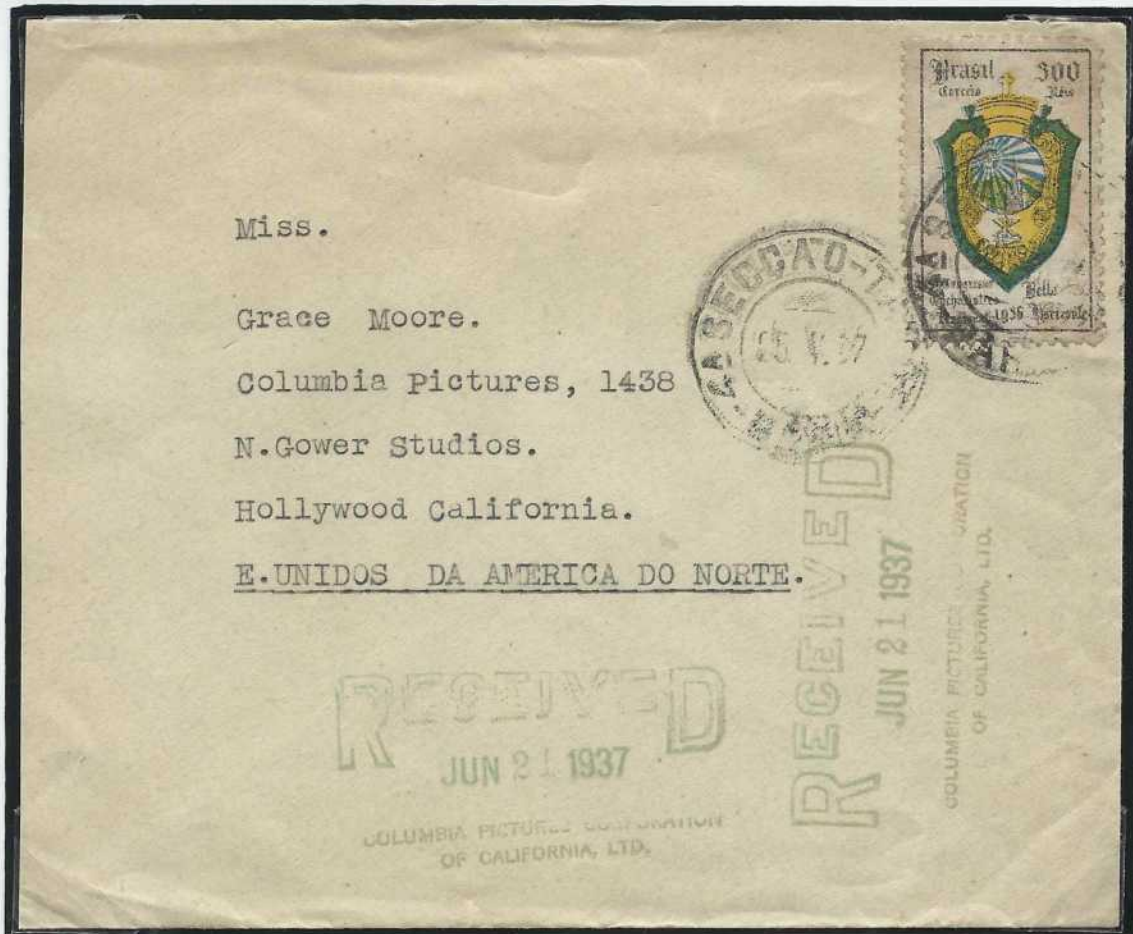 Brasil 300
Correio Réis
Bello
1936 Horizonte
Miss.
Grace Moore.
Columbia Pictures, 1438
N.Gower Studios.
Hollywood California.
E.UNIDOS DA AMERICA DO NORTE.
SECCAO-
RECEIVED
JUN 21 1937
COLUMBIA PICTURES CORPORATION
OF CALIFORNIA, LTD.
RECEIVED
JUN 21 1937
COLUMBIA PICTURES
OF CALIFORNIA, LTD.